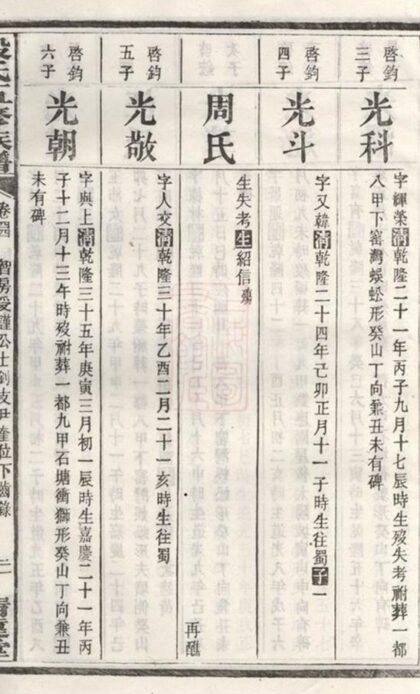 啓鈞
三子
光科
字輝藥清乾隆二十一年丙子九月十七辰時生歿失考祔葬一都
八甲下窰灣蜈蚣形癸山丁向兼丑未有碑
啓鈞
四子
光斗
字又韓清乾隆二十四年己卯正月十一子時生往蜀子一
周氏
生失考生紹信
再醮
啓鈞
五子
光敬
字人交清乾隆三十年乙酉二月二十一亥時生往蜀
啓鈞
六子
光朝
字與上清乾隆三十五年庚寅三月初一辰時生嘉慶二十一年丙
子十二月十三午時歿祔葬一都九甲石塘衝獅形癸山丁向兼丑
未有碑
氏五修族譜
卷四
智房受謹公仕釗支尹奎位下齒錄